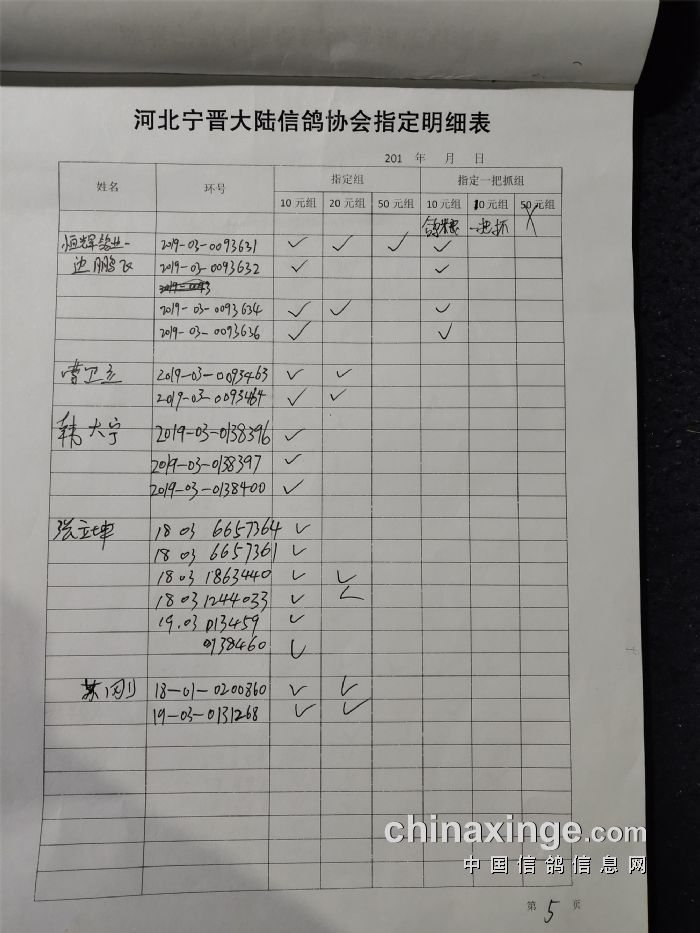 河北宁晋大陆信鸽协会指定明细表
201 年 月 日
姓名 环号 指定组 指定一把抓组
10 元组 20 元组 50 元组 10 元组 10 元组 50 元组
一把抓
恒辉鸽业- 2019-03-0093631 ✓ ✓ ✓ ✓
边鹏飞 2019-03-0093632 ✓ ✓
2019-03-0093634 ✓ ✓ ✓
2019-03-0093636 ✓ ✓
曹卫立 2019-03-0093463 ✓ ✓
2019-03-0093464 ✓ ✓
韩大宁 2019-03-0138396 ✓
2019-03-0138397 ✓
2019-03-0138400 ✓
张立坤 18 03 6657364 ✓
18 03 6657361 ✓
18 03 1863440 ✓ ✓
18 03 1244033 ✓ ✓
19.03 013459 ✓
0138460 ✓
苏刚 18-01-0200860 ✓ ✓
19-03-0131268 ✓ ✓
chinaxinge.com
中国信鸽信息网
第 5 页